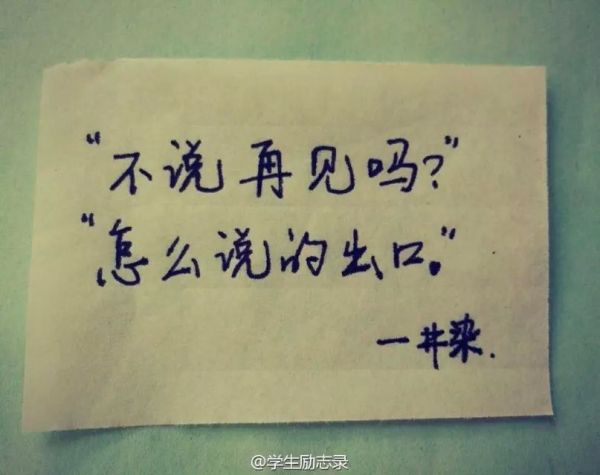 “不说再见吗?”
“怎么说的出口。”
一井染.
@学生励志录